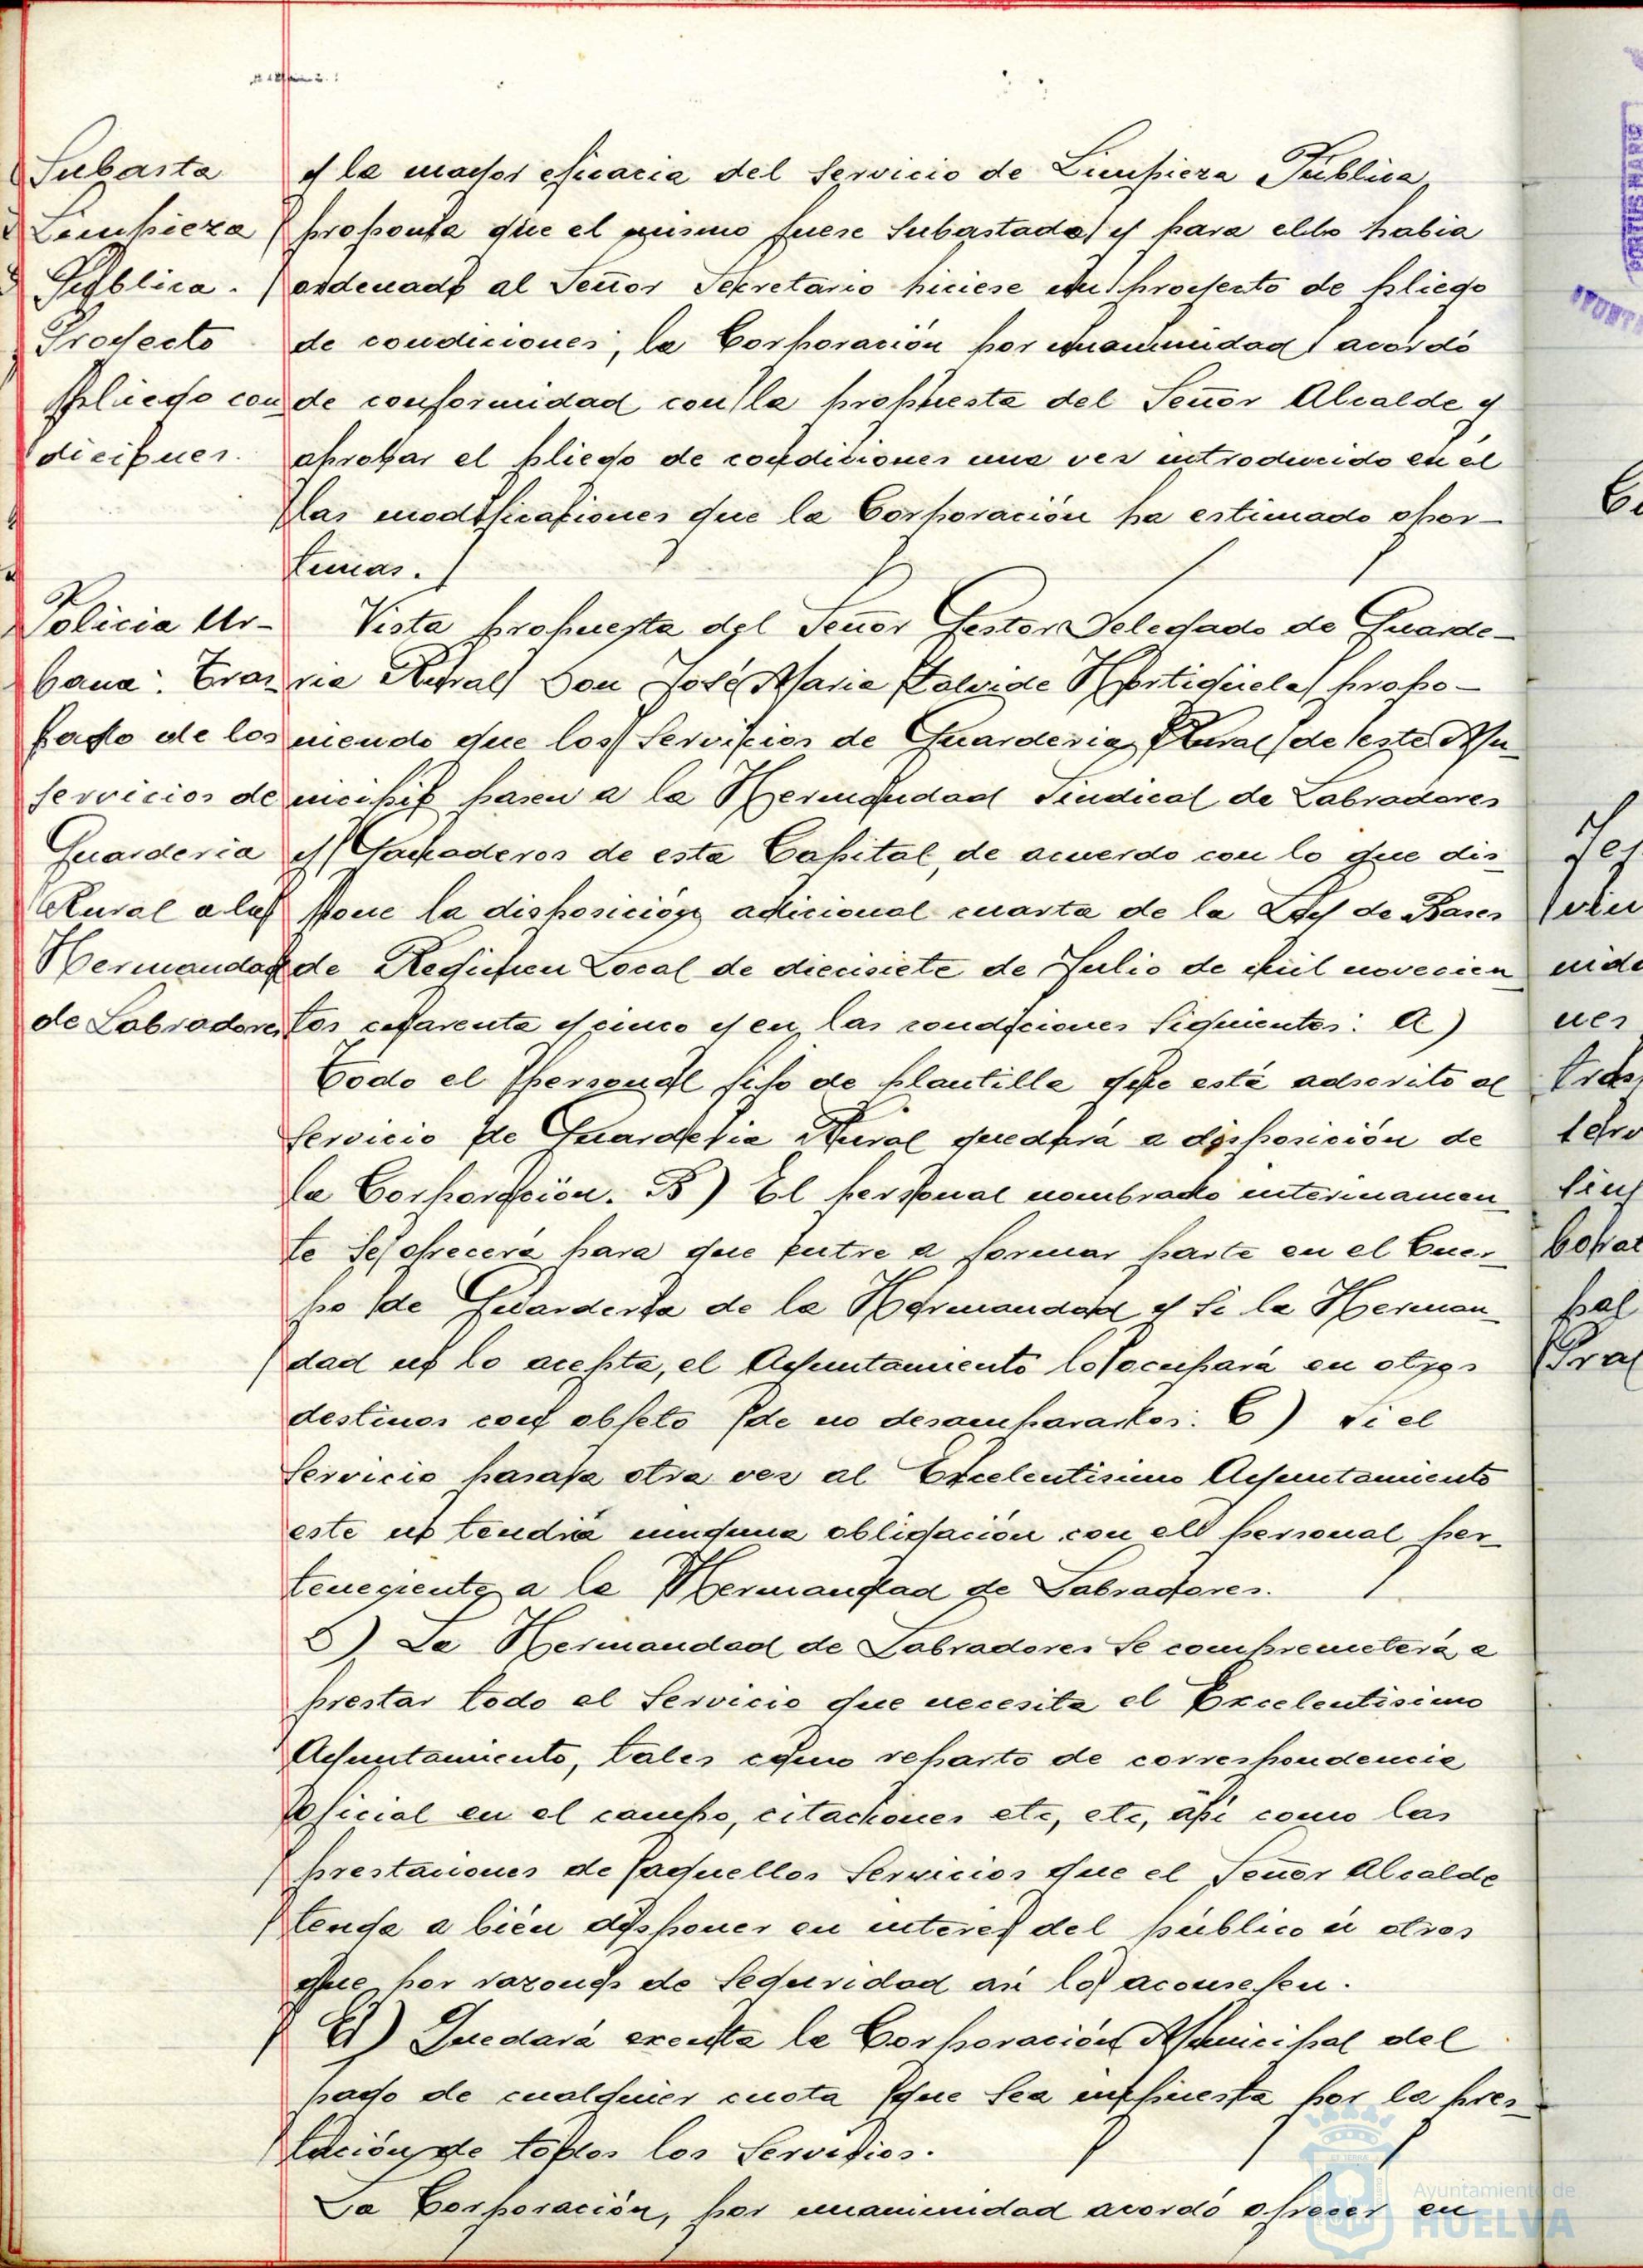 Subasta
Limpieza
Pública.
Proyecto
Pliego con
diciones.
y la mayor eficacia del Servicio de Limpieza Pública,
proponia que el mismo fuese subastado y para ello habia
ordenado al Señor Secretario hiciese un proyecto de pliego
de condiciones; la Corporación por unanimidad acordó
de conformidad con la propuesta del Señor Alcalde y
aprobar el pliego de condiciones una vez introducido en él
las modificaciones que la Corporación ha estimado opor-
tunas.
Policia Ur-
bana: Tras
pado de los
servicios de
Guarderia
Rural a la
Hermandad
de Labradores
Vista propuesta del Señor Gestor Delegado de Guarde-
ria Rural Don José Maria Hortigüela propo-
niendo que los Servicios de Guarderia Rural de este Mu-
nicipio pasen a la Hermandad Sindical de Labradores
y Ganaderos de esta Capital, de acuerdo con lo que dis-
pone la disposición adicional cuarta de la Ley de Bases
de Regimen Local de diecisiete de Julio de mil novecien
tos cuarenta y cinco y en las condiciones siguientes: A)
Todo el personal fijo de plantilla que está adscrito al
Servicio de Guarderia Rural quedará a disposición de
la Corporación. B) El personal nombrado interinamen
te se ofrecerá para que entre a formar parte en el Cuer-
po de Guarderia de la Hermandad y si la Herman-
dad no lo acepta, el Ayuntamiento lo ocupará en otros
destinos con objeto de no desampararlos. C) Si el
Servicio pasara otra vez al Excelentisimo Ayuntamiento
este no tendrá ninguna obligación con el personal per-
teneciente a la Hermandad de Labradores.
D) La Hermandad de Labradores se comprometerá a
prestar todo el Servicio que necesita el Excelentisimo
Ayuntamiento, tales como reparto de correspondencia
oficial en el campo, citaciones etc, etc, asi como las
prestaciones de aquellos Servicios que el Señor Alcalde
tenga a bién disponer en interes del público ú otros
que por razones de seguridad asi lo aconsejen.
E) Quedará exenta la Corporación Municipal del
pago de cualquier cuota que sea impuesta por la pres-
tación de todos los Servicios.
La Corporación, por unanimidad acordó ofrecer en
Ayuntamiento de
HUELVA